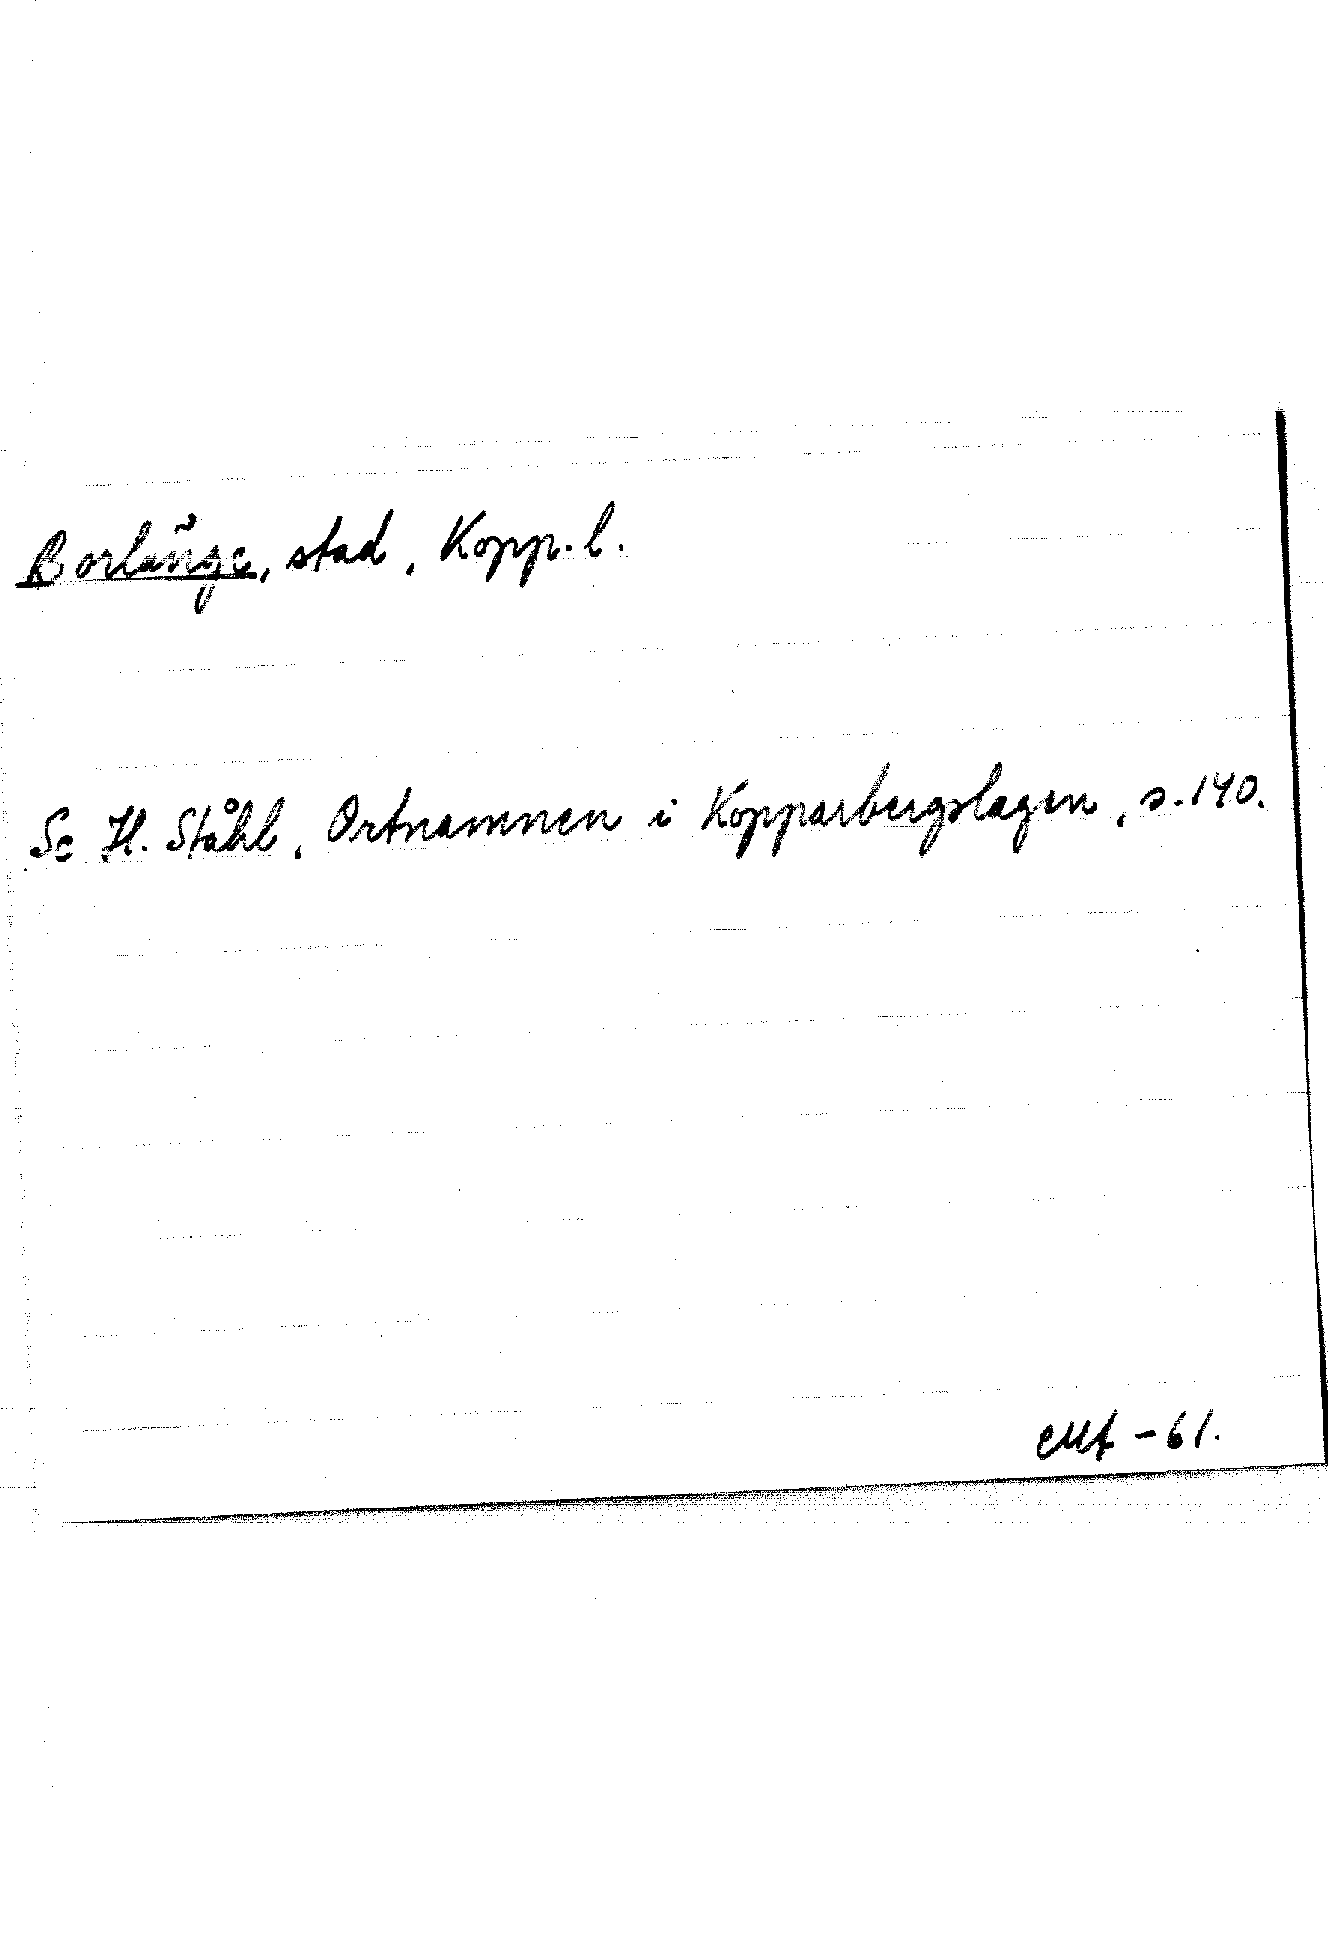 Borlänge, stad, Kopp. l.
Se H. Ståhl, Ortnamnen i Kopparbergslagen, s. 140.
-61.